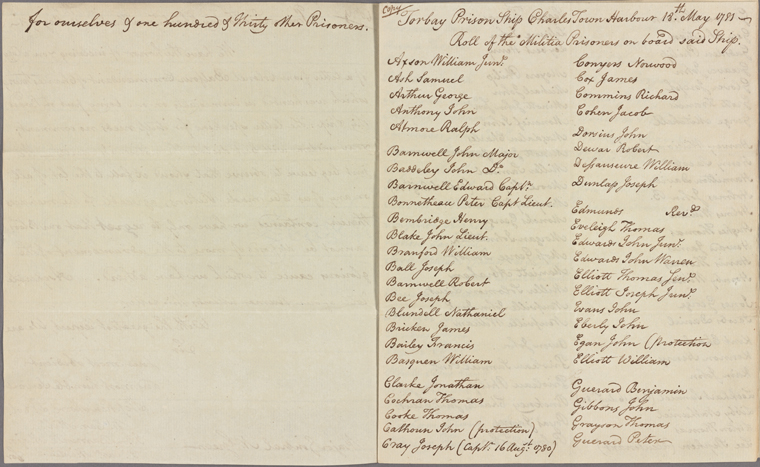 for ourselves & one hundred & Thirty other Prisoners.
Copy
Torbay Prison Ship Charles Town Harbour 18.th May 1781
Roll of the Militia Prisoners on board said Ship.
Axson William Junr.
Ash Samuel
Arthur George
Anthony John
Atmore Ralph
Barnwell John Major
Baddeley John Do.
Barnwell Edward Captn.
Bonnetheau Peter Capt Lieut.
Bembridge Henry
Blake John Lieut.
Branford William
Ball Joseph
Barnwell Robert
Bee Joseph
Blundell Nathaniel
Bricken James
Bailey Francis
Basquen William
Clarke Jonathan
Cochran Thomas
Cooke Thomas
Calhoun John (protection)
Cray Joseph (Captn. 16 Augst. 1780)
Conyers Norwood
Cox James
Commins Richard
Cohen Jacob
Dorrius John
Dewar Robert
DeSauseure William
Dunlap Joseph
Edmunds Revd.
Eveleigh Thomas
Edwards John Junr.
Edwards John Warren
Elliott Thomas Senr.
Elliott Joseph Junr.
Evans John
Eberly John
Egan John (protection
Elliott William
Guerard Benjamin
Gibbons John
Grayson Thomas
Guerard Peter